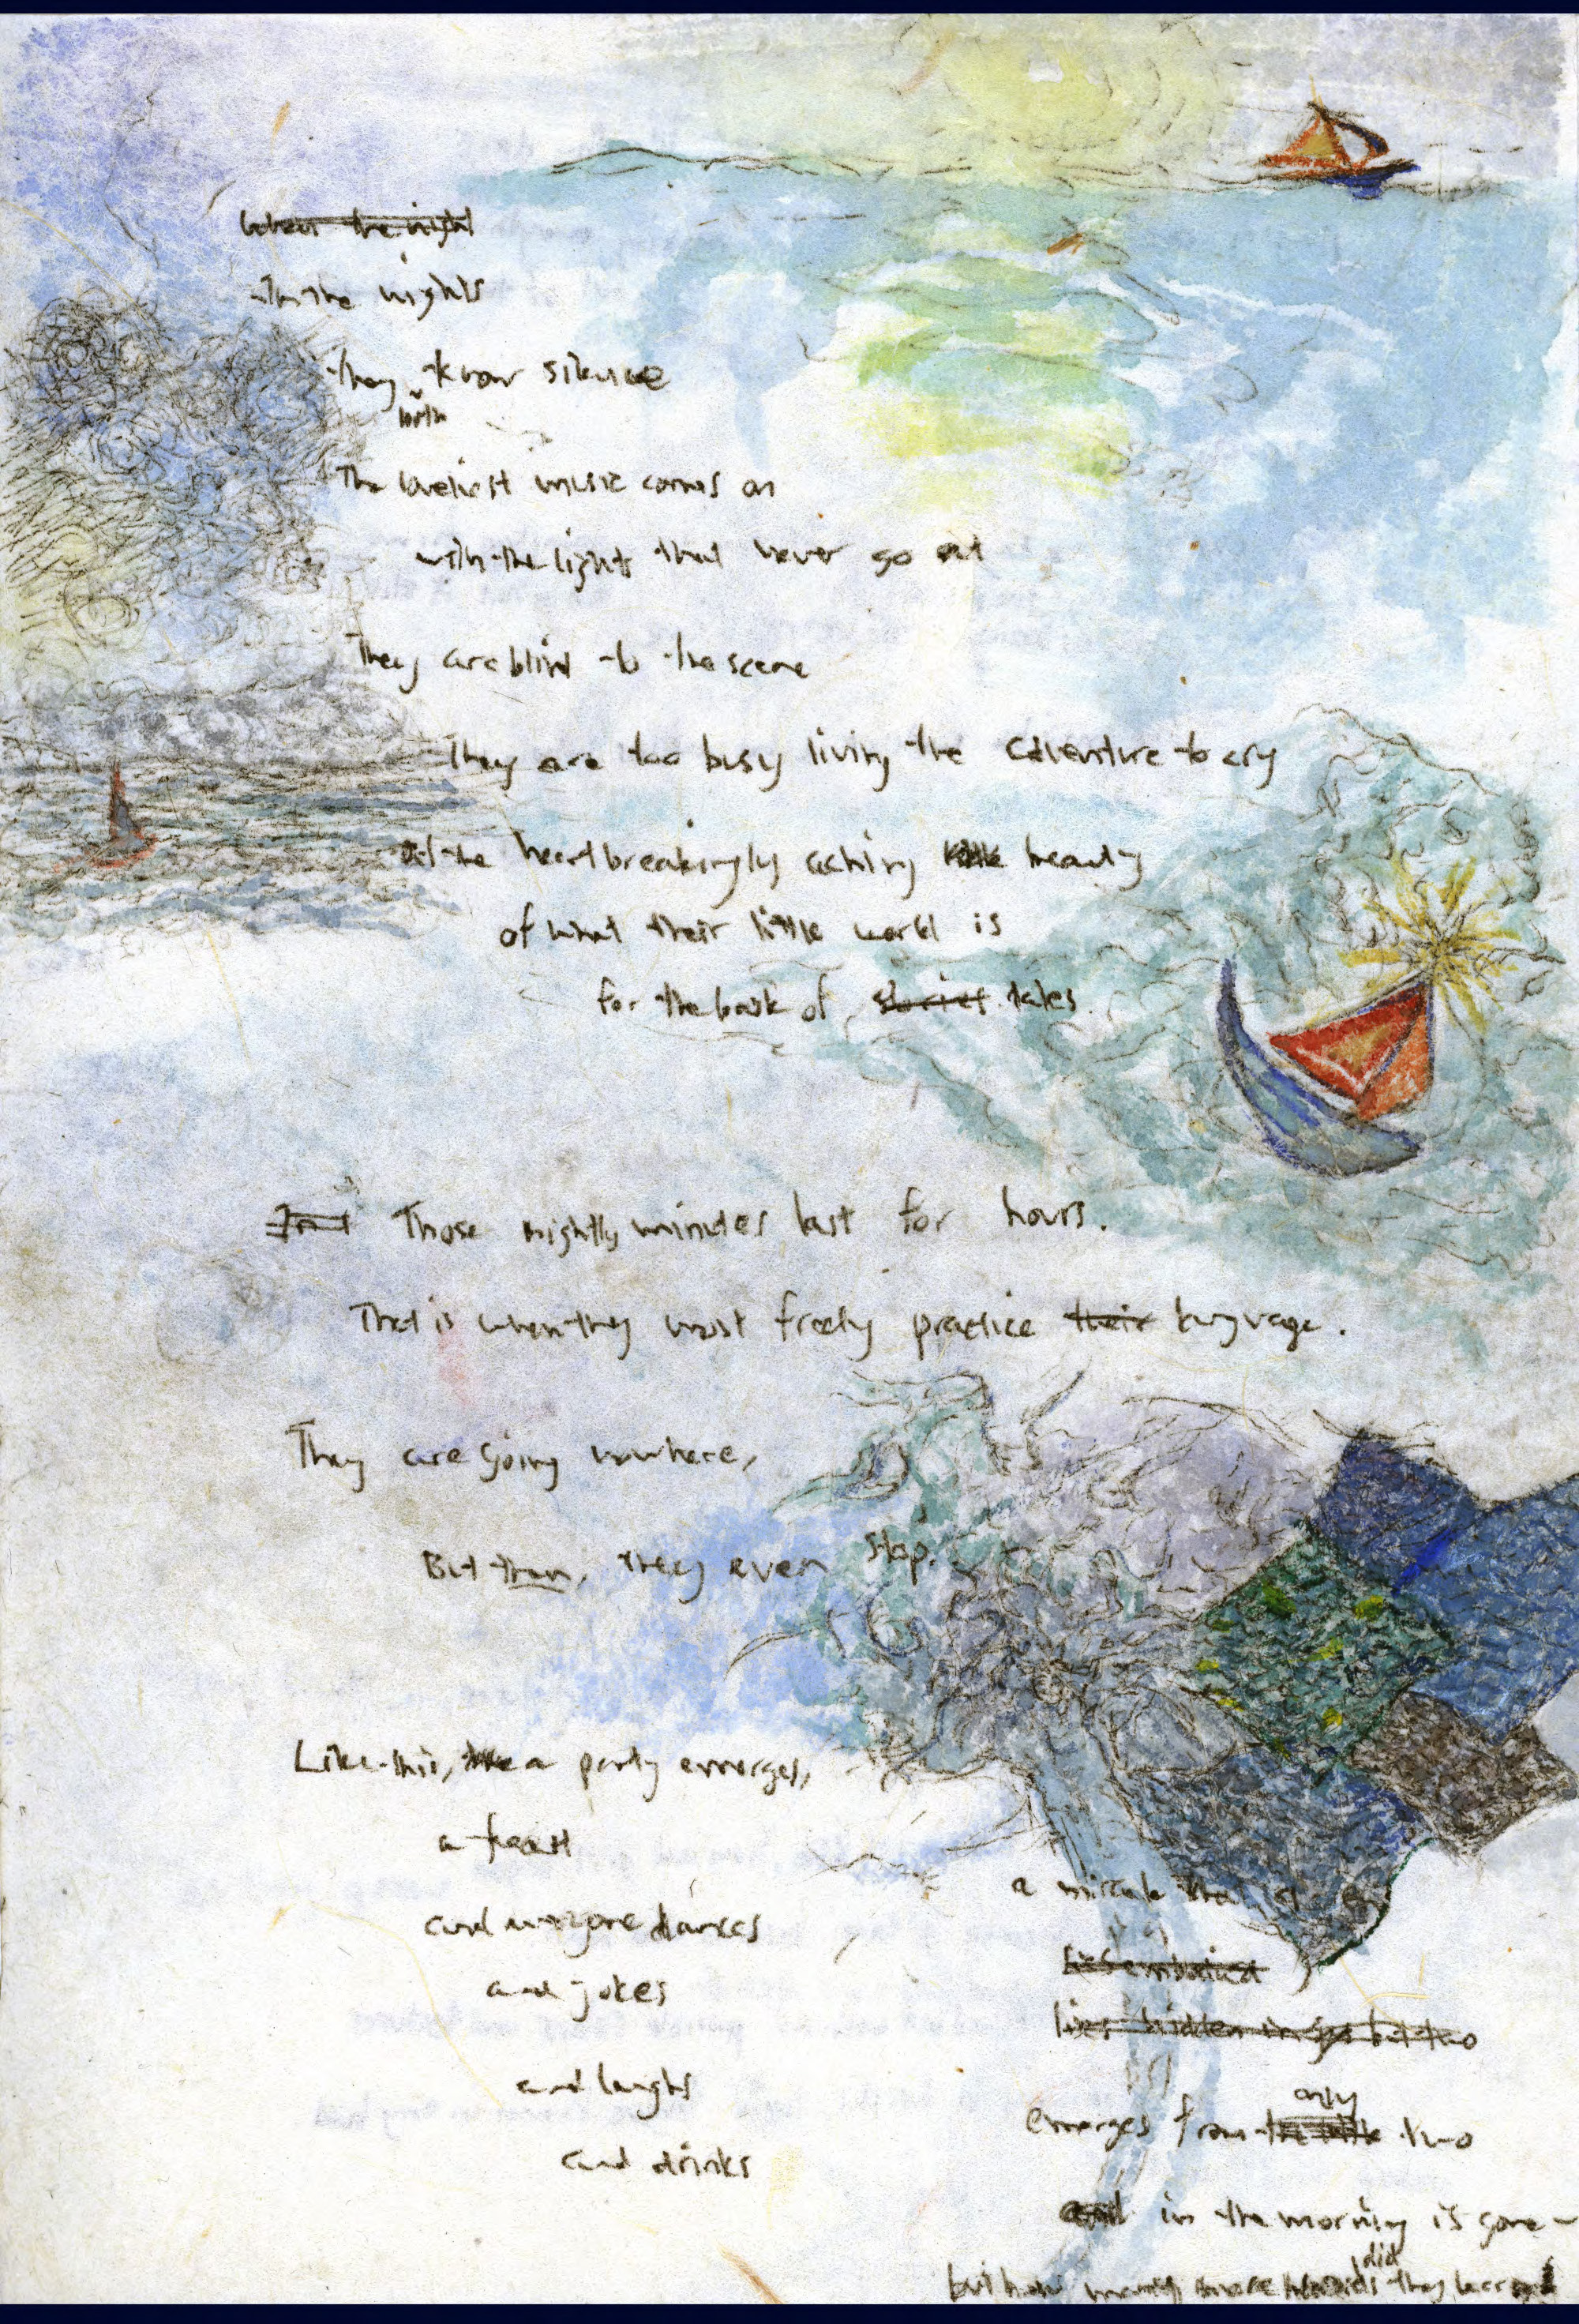 When the night
In the nights
they know silence
both
The loveliest music comes on
with the lights that never go out
They are blind to the scene
They are too busy living the adventure to cry
at the heartbreakingly aching beauty
of what their little world is
for the book of stories tales.
Those nightly minutes last for hours.
That is when they most freely practice their language.
They are going nowhere,
But then, they even stop.
Like this, a party emerges,
a feast
and dances
and jokes
and laughs
and drinks
a miracle that
lives hidden in but two
only
emerges from two
in the morning is gone –
did
but how many more they learned